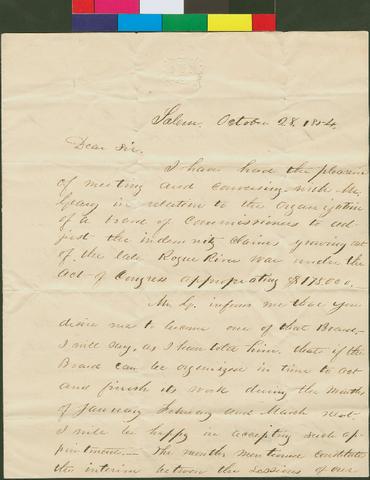 Salem, October 28, 1854.
Dear Sir.
I have had the pleasure
of meeting and conversing with Mr.
Geary in relation to the organization
of a board of Commissioners to ad
just the indemnity claims growing out
of the late Rogue River war under the
act of Congress appropriating $175.000.
Mr. G. informs me that you
desire me to become one of that Board.
I will say, as I have told him, that if the
Board can be organized in time to act
and finish its work during the months
of January February and March next
I will be happy in accepting such ap
pointment. — The months mentioned constitute
the interim between the sessions of our